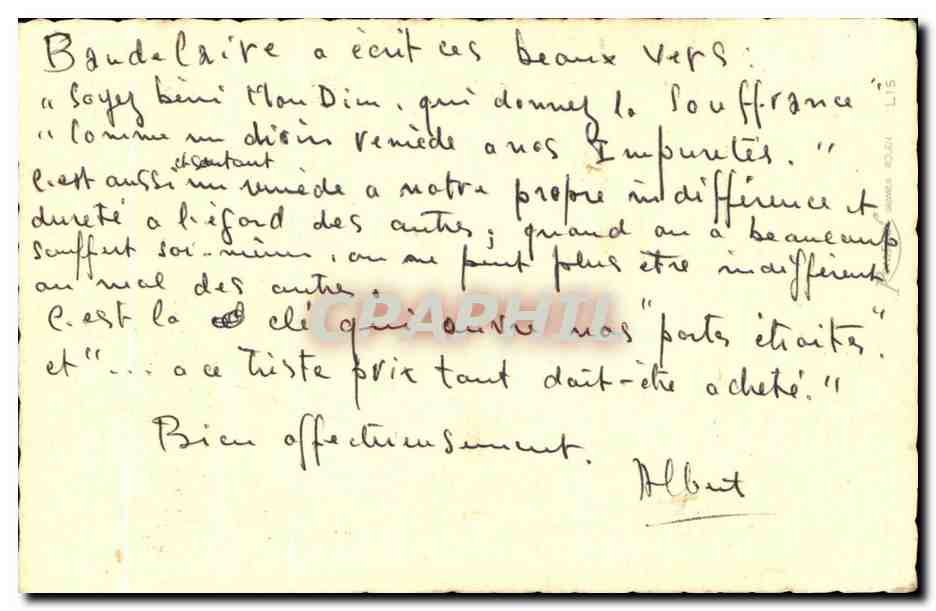 Baudelaire a écrit ces beaux vers :
"Soyez béni Mon Dieu, qui donnez la Souffrance"
"Comme un divin remède a nos Impuretés."
et surtout
C'est aussi un remède a notre propre indifférence et
dureté a l'égard des autres ; quand on a beaucoup
souffert soi-même, on ne peut plus etre indifférent
au mal des autres.
C'est la clé qui ouvre nos "portes étroites"
et "... a ce triste prix tout doit-être acheté."
Bien affectueusement.
Albert
CPAPHIL
L15